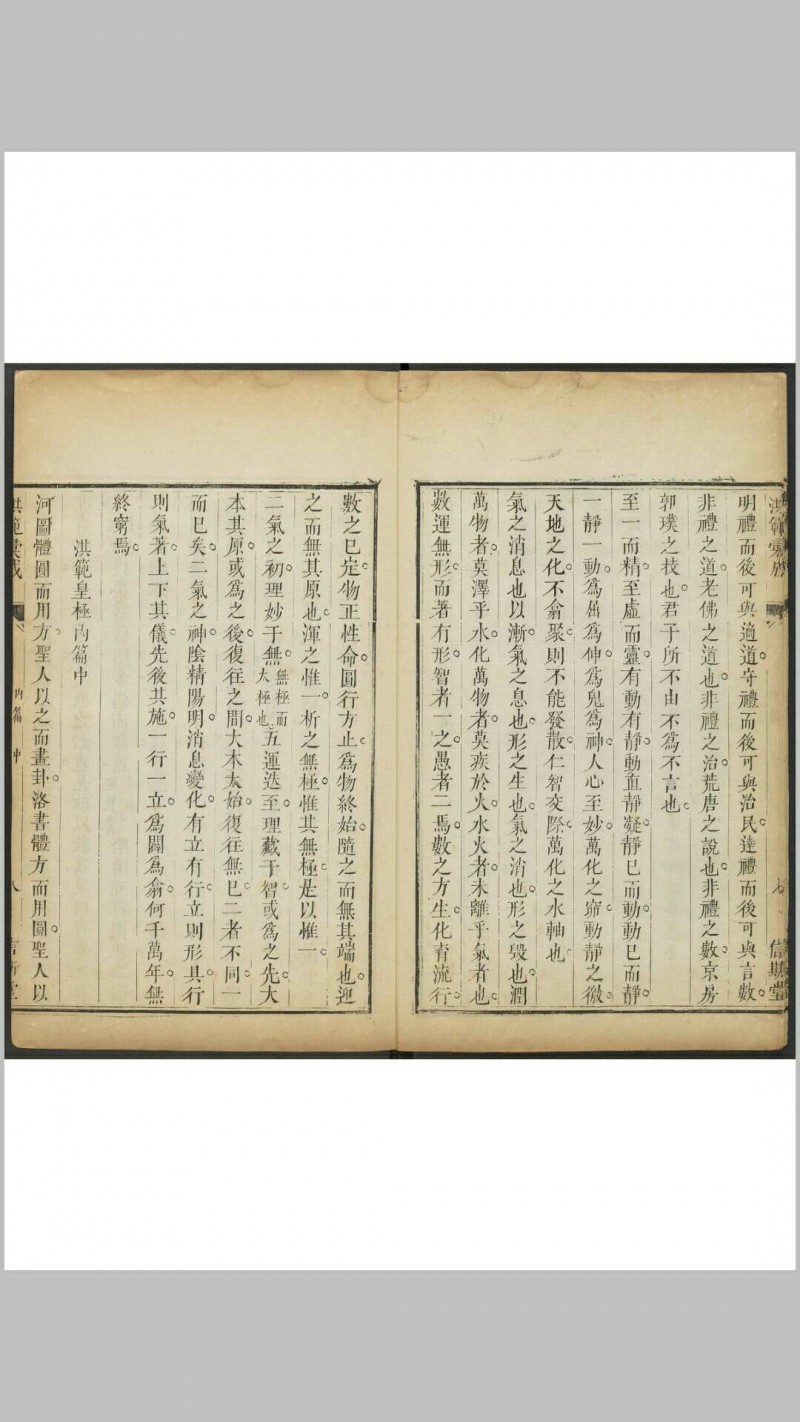 明禮而後可與適道守禮而後可與治民達禮而後可與言數
非禮之道老佛之道也非禮之治荒唐之說也非禮之數京房
郭璞之技也君子所不由不爲不言也
至一而精至虛而靈有動有靜動直靜凝靜巳而動動巳而靜
一靜一動爲屈爲伸爲鬼爲神人心至妙萬化之窌動靜之微
天地之化不翕聚則不能發散仁智交際萬化之水軸也
氣之消息也以漸氣之息也形之生也氣之消也形之毀也潤
萬物者莫澤乎水化萬物者莫疾於火水火者未離乎氣者也
數運無形而著有形智者一之愚者二焉數之方生化育流行
數之巳定物正性命圓行方止爲物終始隨之而無其端也迎
之而無其原也渾之惟一析之無極惟其無極是以惟一
二氣之初理妙于無無極而太極也五運迭至理藏于智或爲之先大
本其原或爲之後復往之間大木太始復往無巳二者不同一
而巳矣二氣之神陰精陽明消息變化有立有行立則形具行
則氣著上下其儀先後其施一行一立爲闢爲翕何千萬年無
終窮焉
洪範皇極內篇中
河圖體圓而用方聖人以之而畫卦洛書體方而用圓聖人以
內篇 中
八